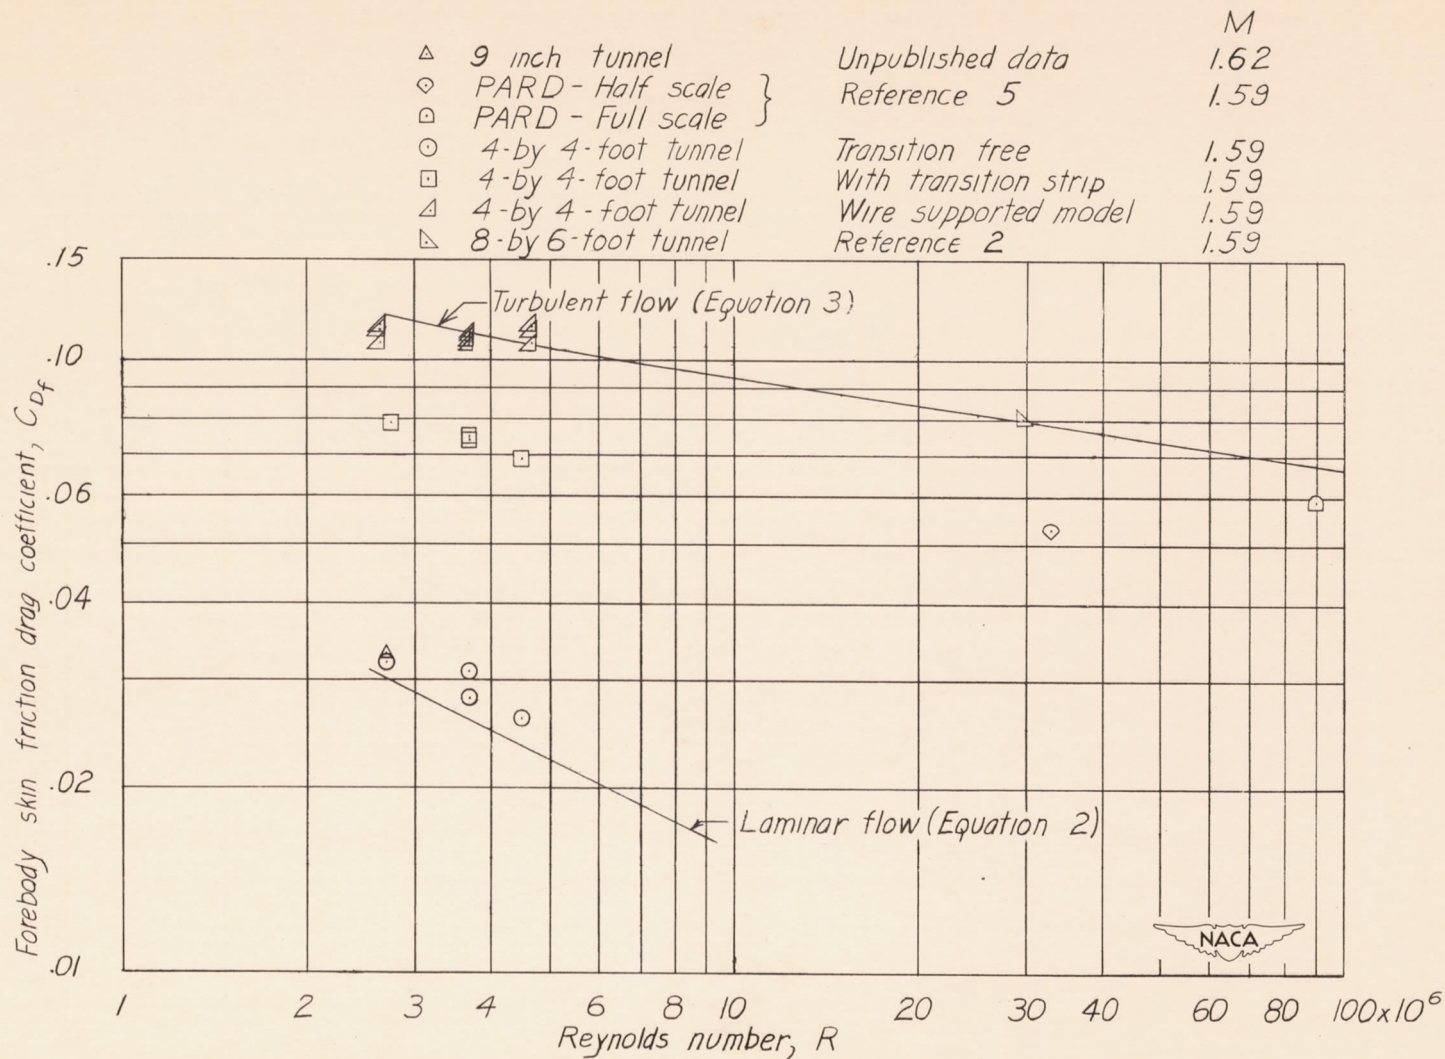 M
9 inch tunnel Unpublished data 1.62
PARD - Half scale Reference 5 1.59
PARD - Full scale
4-by 4-foot tunnel Transition free 1.59
4-by 4-foot tunnel With transition strip 1.59
4-by 4-foot tunnel Wire supported model 1.59
8-by 6-foot tunnel Reference 2 1.59
.15
Turbulent flow (Equation 3)
.10
.06
.04
.02
.01
Forebody skin friction drag coefficient, C_Df
Laminar flow (Equation 2)
NACA
1 2 3 4 6 8 10 20 30 40 60 80 100x10⁶
Reynolds number, R